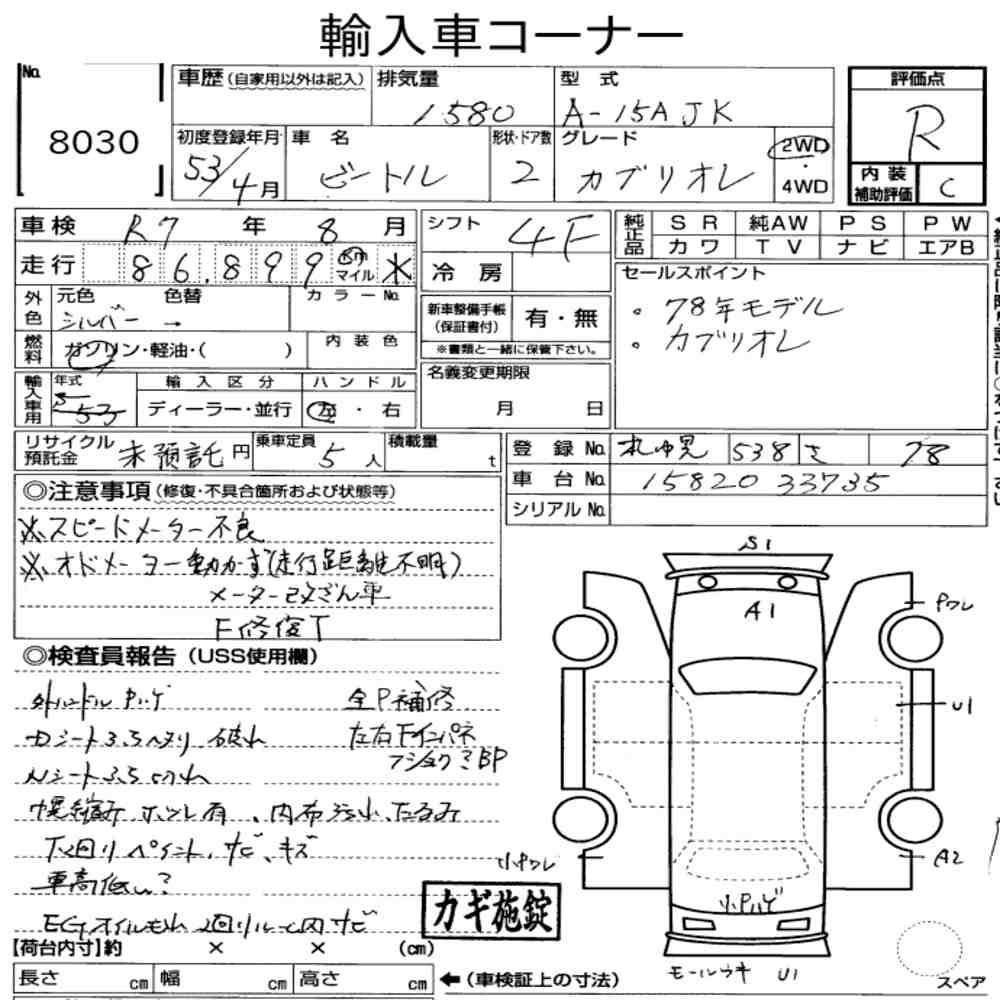 輸入車コーナー
No. 8030
車歴 (自家用以外は記入) 排気量 1580 型式 A-15AJK
初度登録年月 53/4月 車名 ビートル 形状・ドア数 2 グレード カブリオレ 2WD・4WD
評価点 R
内装補助評価 C
車検 R7年 8月
走行 86,899 km マイル
外色 元色 シルバー 色替 → カラーNo.
燃料 ガソリン・軽油・( ) 内装色
輸入車用 年式 53 輸入区分 ディーラー・並行 ハンドル 左・右
シフト 4F
冷房
新車整備手帳(保証書付) 有・無
※書類と一緒に保管下さい。
名義変更期限 月 日
純正品 SR 純AW PS PW
カワ TV ナビ エアB
セールスポイント
。78年モデル
。カブリオレ
リサイクル預託金 未預託 円 乗車定員 5人 積載量 t
登録No. 538 さ 78
車台No. 1582033735
シリアルNo.
◎注意事項(修復・不具合箇所および状態等)
※スピードメーター不良
※オドメーター動かず(走行距離不明)
メーター改ざん車
F修復T
◎検査員報告(USS使用欄)
全P補修
Dシート3.5ヘタリ 破れ
左右Fインパネ
Nシート3.5切れ
幌縮み ホツレ有、内布汚れ、たるみ
下廻りペイント、サビ、キズ
車高低い?
EGオイルもれ
カギ施錠
【荷台内寸】約 × × (cm)
長さ cm 幅 cm 高さ cm
←(車検証上の寸法)
S1
A1
Pワレ
U1
A2
小Pワレ
小Pハゲ
モールウキ U1
スペア